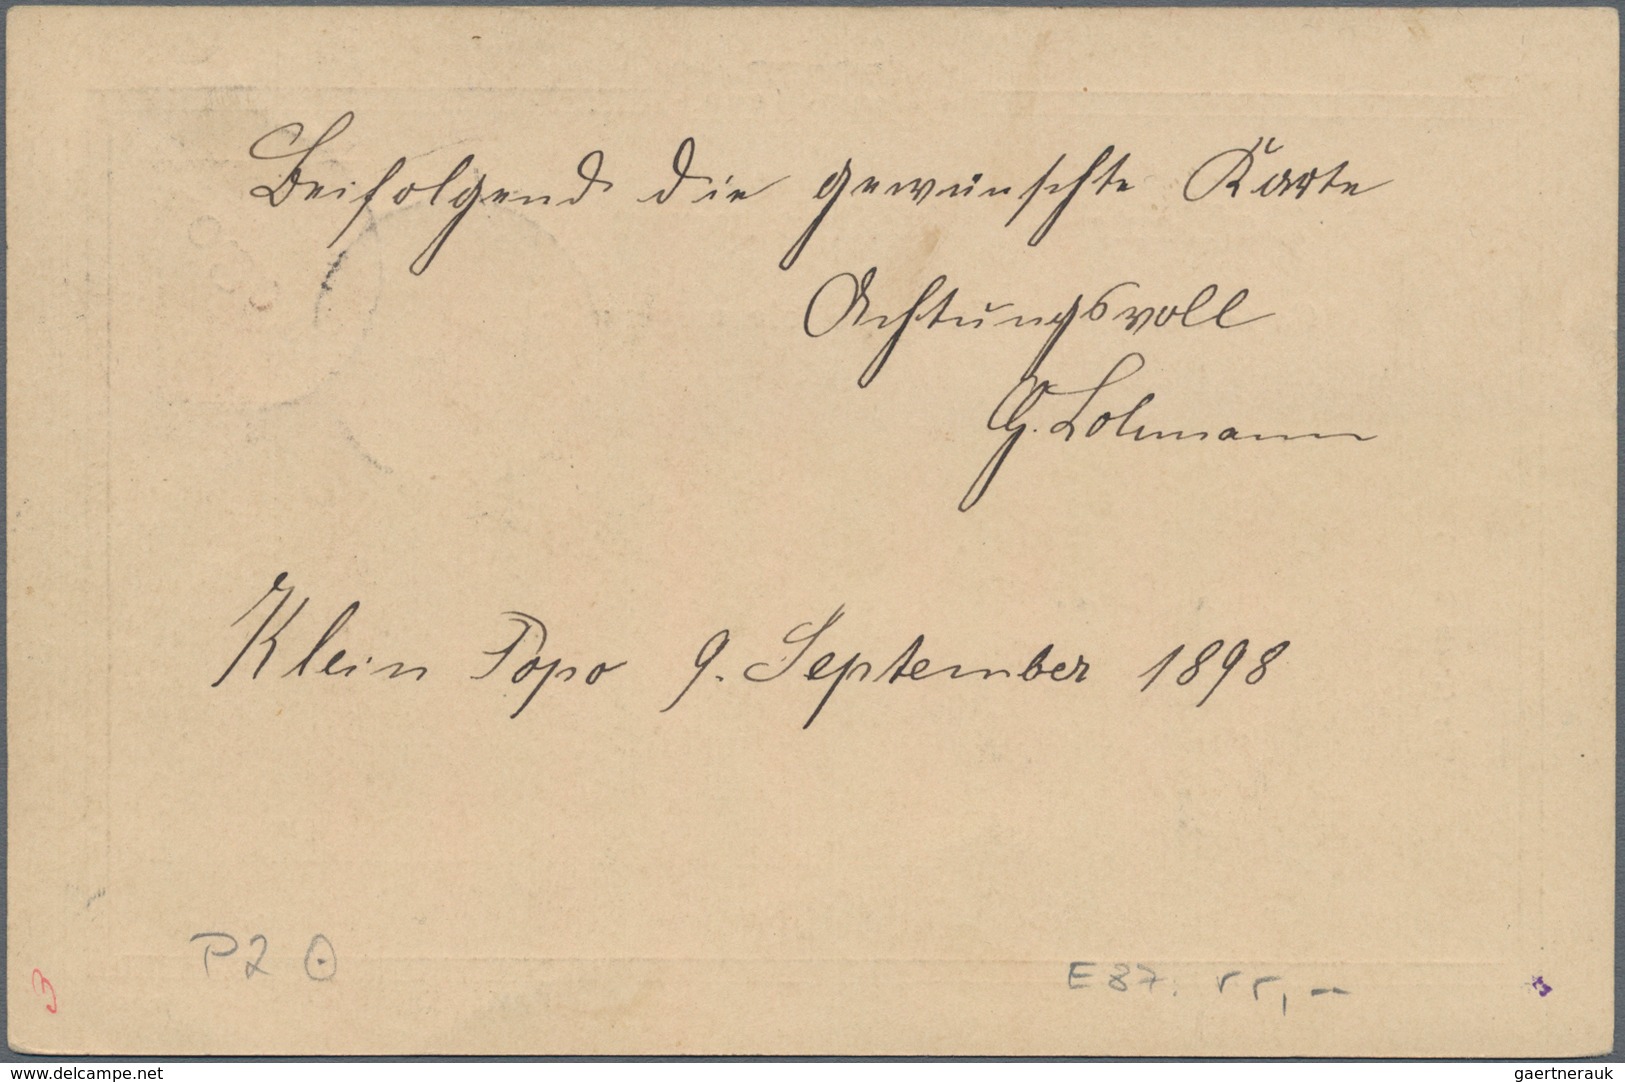 Beifolgend die gewünschte Karte
Achtungsvoll
G. Lohmann
Klein Popo 9. September 1898
P2 ⊙
E 87.
3
www.delcampe.net
gaertnerauk